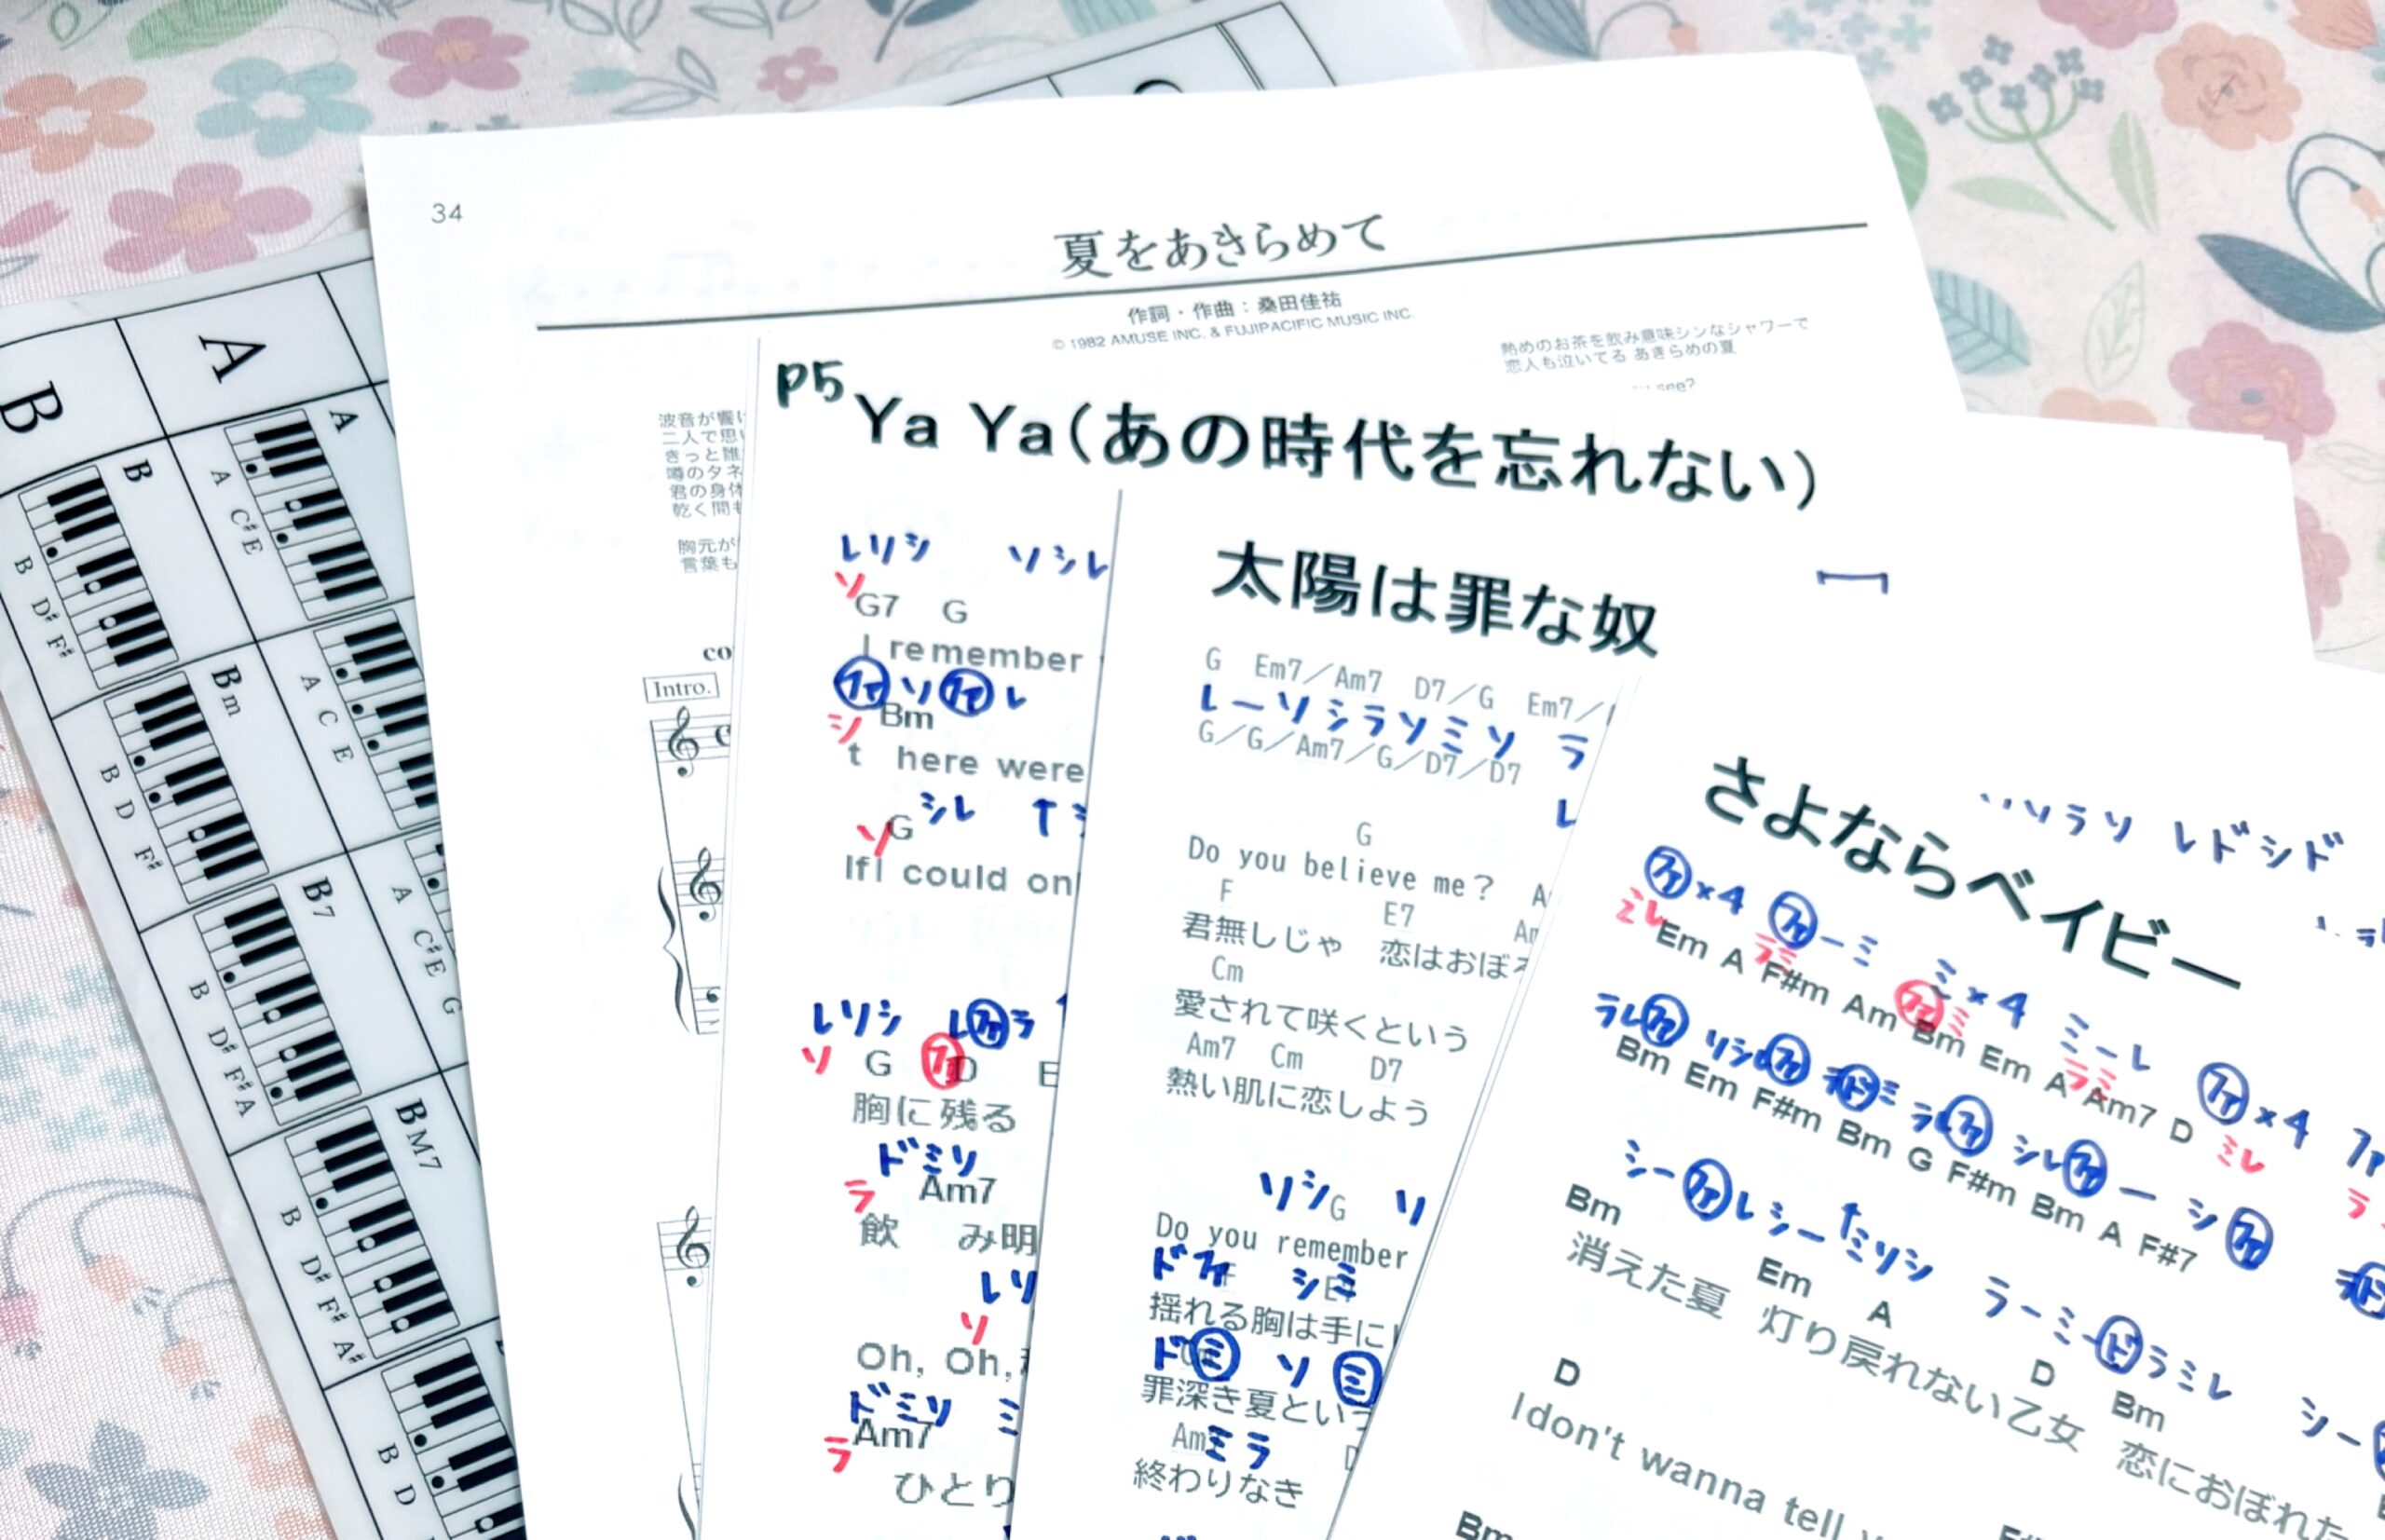 34
夏をあきらめて
作詞・作曲：桑田佳祐
© 1982 AMUSE INC. & FUJIPACIFIC MUSIC INC.
熱めのお茶を飲み意味シンなシャワーで
恋人も泣いてる あきらめの夏
see?
波音が響
二人で思
きっと誰
噂のタネ
君の身体
乾く間も
胸元が
言葉も
Intro.
P5
Ya Ya（あの時代を忘れない）
レソシ ソシレ
ソ
G7 G
I remember
ファ ソ ファ レ
シ Bm
t here were
シレ ↑
ソ G
If I could on
レソシ レファラ
ソ G ファ D E
胸に残る
ドミソ
ラ Am7
飲 み明
レソ
ソ
Oh, Oh,
ドミソ ミ
ラ Am7
ひとり
太陽は罪な奴
G Em7／Am7 D7／G Em7／
レーソシラソミソ ラ
G／G／Am7／G／D7／D7
レ
G
Do you believe me？
F E7
君無しじゃ 恋はおぼ
Cm
愛されて咲くという
Am7 Cm D7
熱い肌に恋しよう
ソシ G ソ
Do you remember
ドファ シミ
揺れる胸は手に
ドミ ソ ミ
罪深き夏という
Am ミラ D
終わりなき
さよならベイビー
ソラソ レドシド
ファ×4 ファーミ ミ×4 ミーレ ファ×4
ミレ ラミ ファミ ラミ ミレ ラ
Em A F#m Am Bm Em A Am7 D
ラレファ ソシファ ラドミ ラレファ シレファ ー シファ
Bm Em F#m Bm G F#m Bm A F#7
シーファレシー ↑ミソシ ラーミードラミレ シー
Bm Em A D Bm
消えた夏 灯り戻れない乙女 恋におぼれた
D
I don't wanna tell
Bm
A
A
A C# E
A C E
A C# E G
B
B
B D# F#
Bm
B D F#
B7
B D# F# A
BM7
B D# F# A#
B D